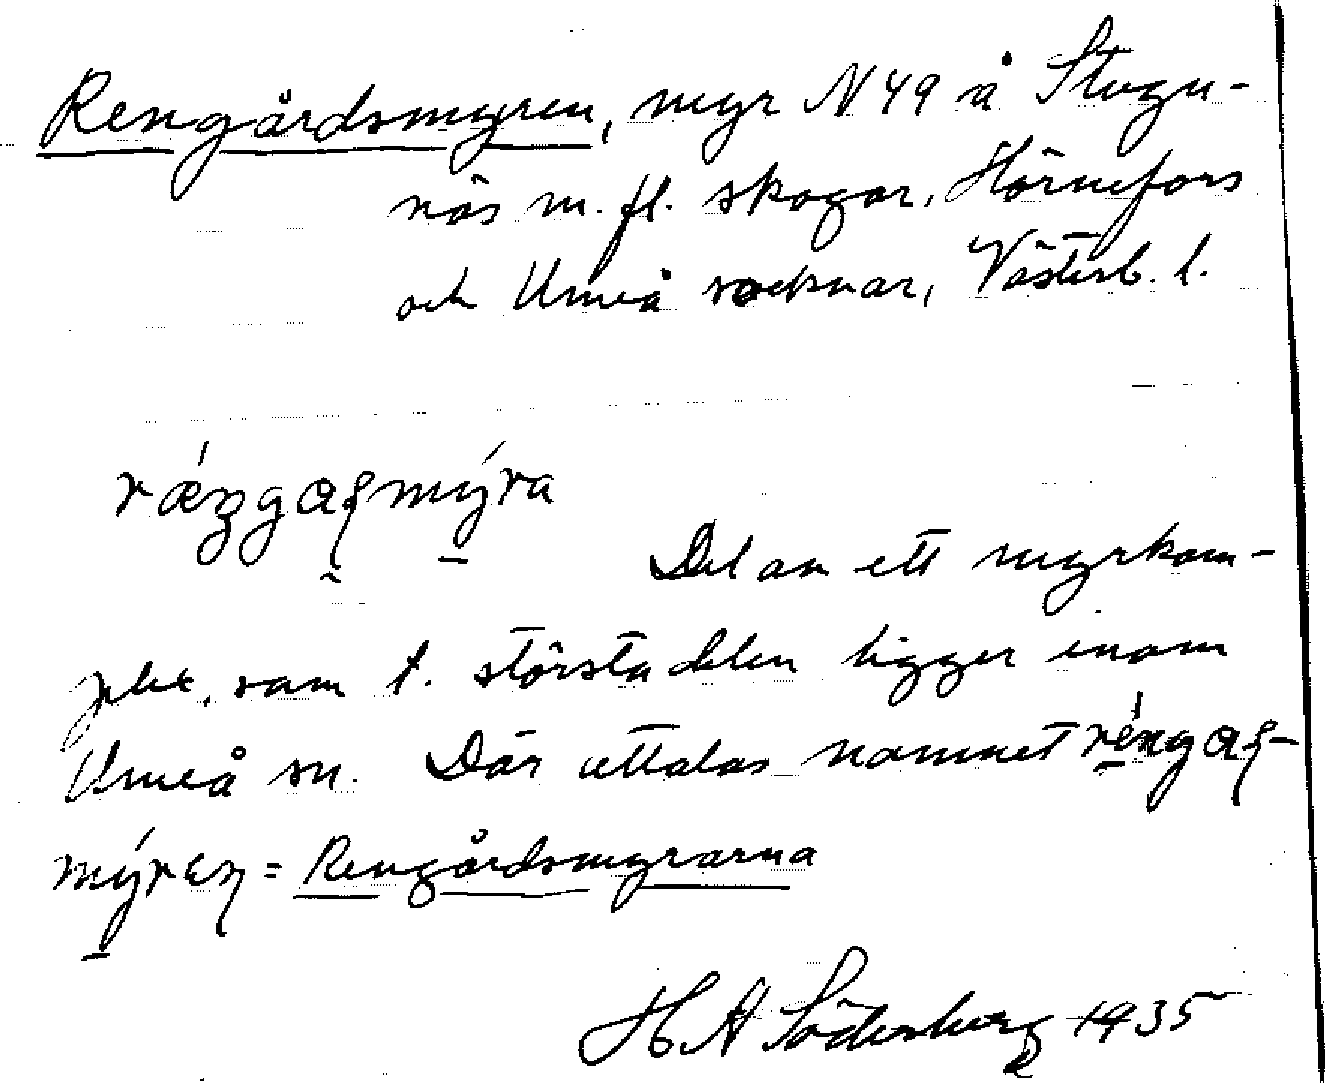 Rengårdsmyren, myr N 49 å Stugu-
näs m. fl. skogar, Hörnefors
och Umeå socknar, Västerb. l.
Del av ett myrkom-
plex, som t. största delen ligger inom
Umeå sn. Där uttalas namnet
= Rengårdsmyrarna
H A Söderberg 1935